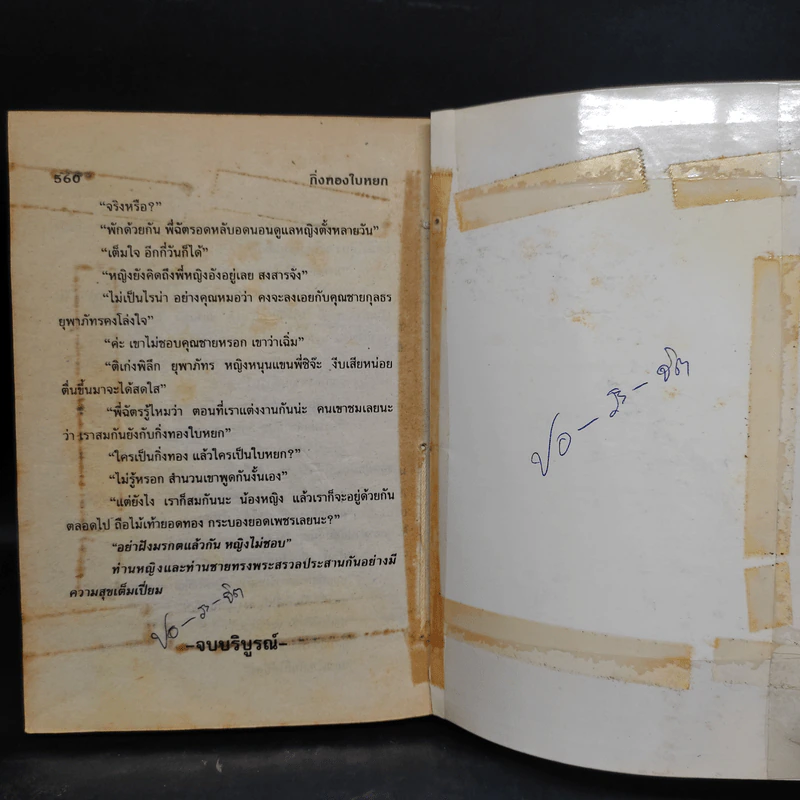 560
กิ่งทองใบหยก
“จริงหรือ?”
“พักด้วยกัน พี่ฉัตรอดหลับอดนอนดูแลหญิงตั้งหลายวัน”
“เต็มใจ อีกกี่วันก็ได้”
“หญิงยังคิดถึงพี่หญิงอังอยู่เลย สงสารจัง”
“ไม่เป็นไรน่า อย่างคุณหมอว่า คงจะลงเอยกับคุณชายกุลธร
ยุพาภัทรคงโล่งใจ”
“ค่ะ เขาไม่ชอบคุณชายหรอก เขาว่าเฉิ่ม”
“ติเก่งพิลึก ยุพาภัทร หญิงหนุนแขนพี่ซิจ๊ะ งีบเสียหน่อย
ตื่นขึ้นมาจะได้สดใส”
“พี่ฉัตรรู้ไหมว่า ตอนที่เราแต่งงานกันน่ะ คนเขาชมเลยนะ
ว่า เราสมกันยังกับกิ่งทองใบหยก”
“ใครเป็นกิ่งทอง แล้วใครเป็นใบหยก?”
“ไม่รู้หรอก สำนวนเขาพูดกันงั้นเอง”
“แต่ยังไง เราก็สมกันนะ น้องหญิง แล้วเราก็จะอยู่ด้วยกัน
ตลอดไป ถือไม้เท้ายอดทอง กระบองยอดเพชรเลยนะ?”
“อย่าฝังมรกตแล้วกัน หญิงไม่ชอบ”
ท่านหญิงและท่านชายทรงพระสรวลประสานกันอย่างมี
ความสุขเต็มเปี่ยม
–จบบริบูรณ์–